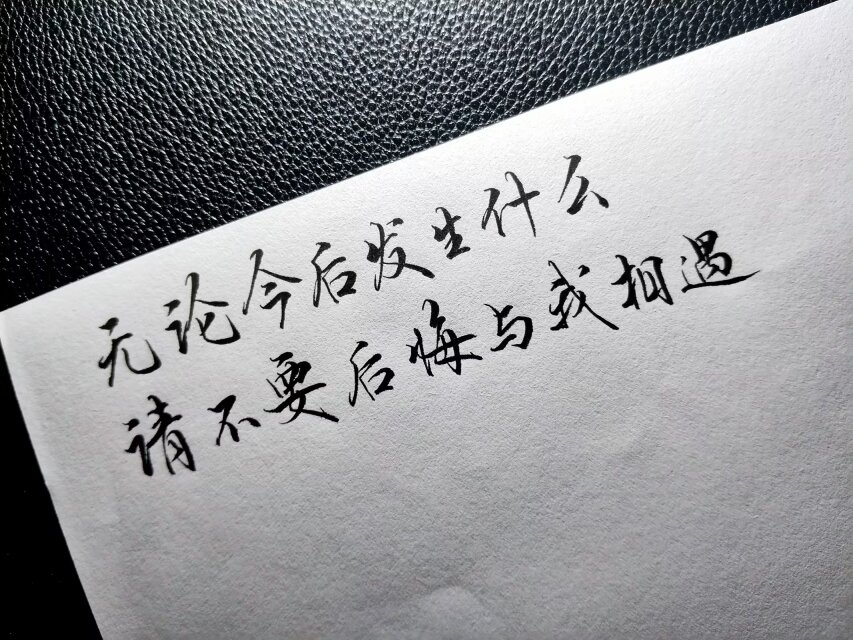 无论今后发生什么
请不要后悔与我相遇